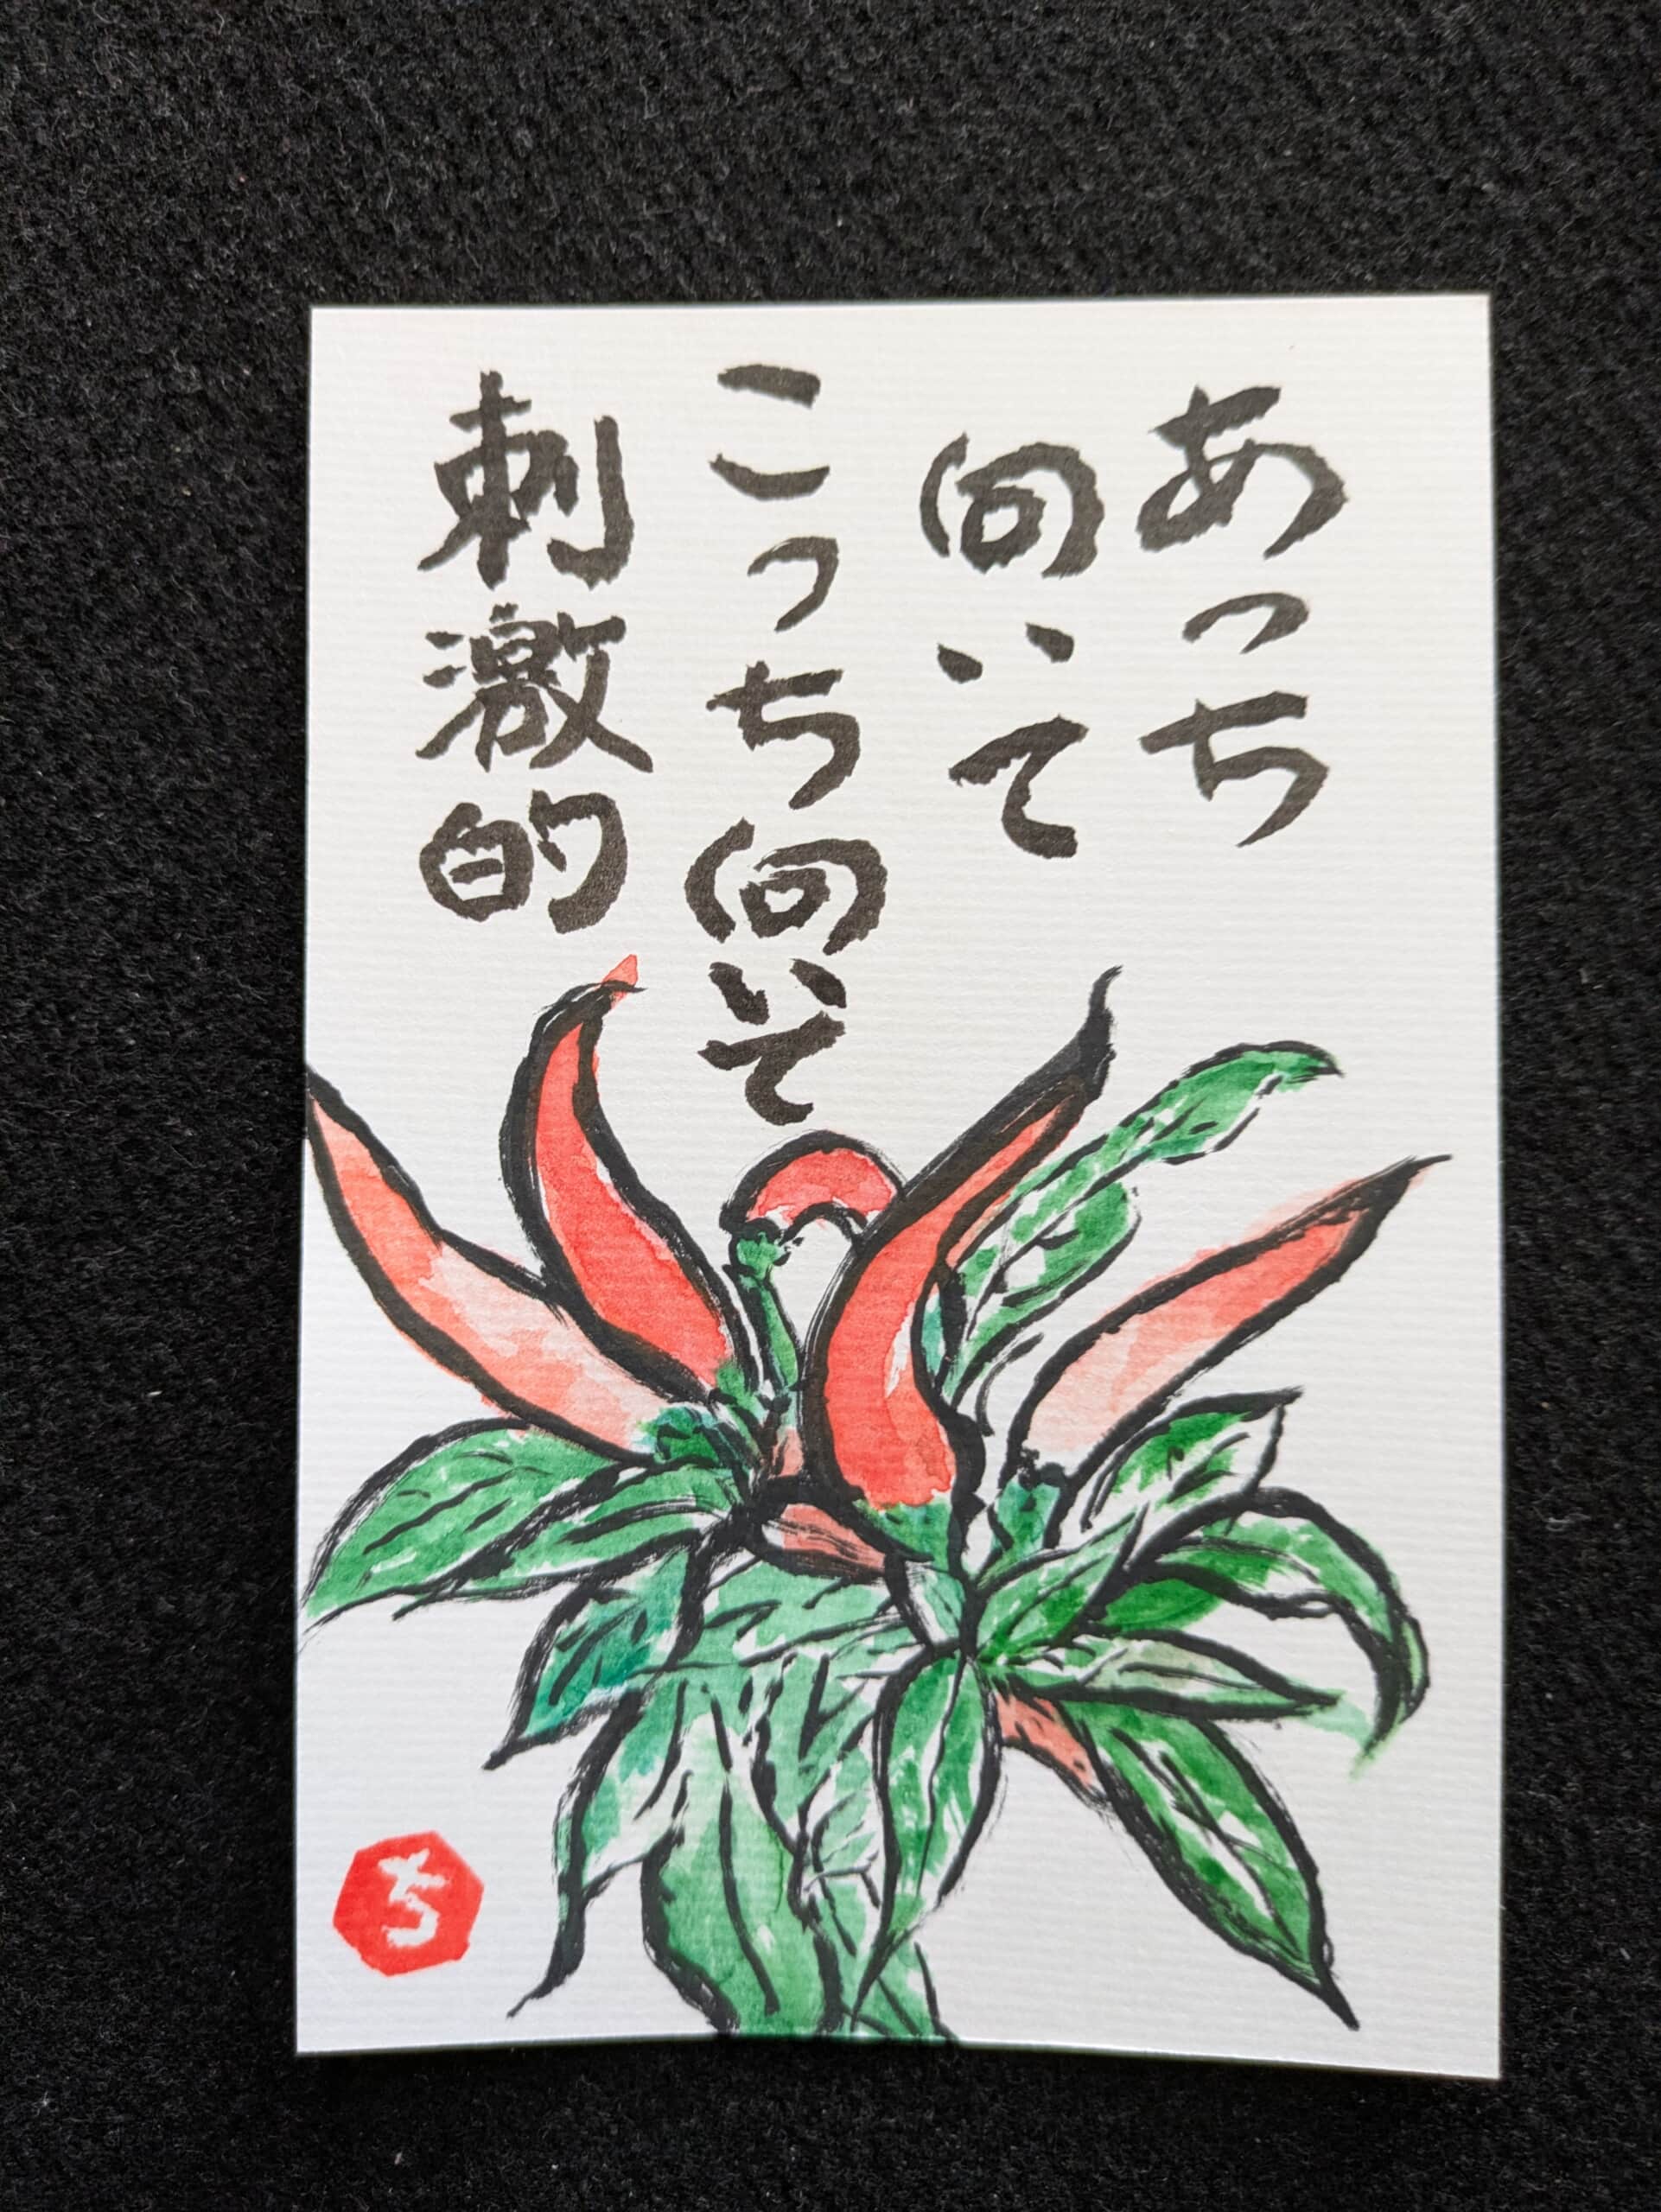 あっち
向いて
こっち向いて
刺激的
ち